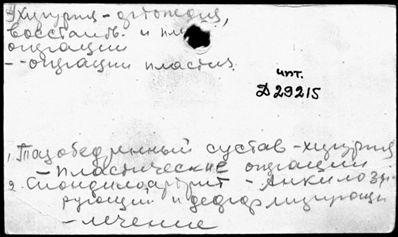 Хирургия - ортопедия,
восстанов. и пла
операции
- - операции пластич.
чит.
Д 29215
1, Тазобедренный сустав - хирургия
- пластические операции
2. Спондилоартрит - Анкилози
рующий и деформирующий
- лечение